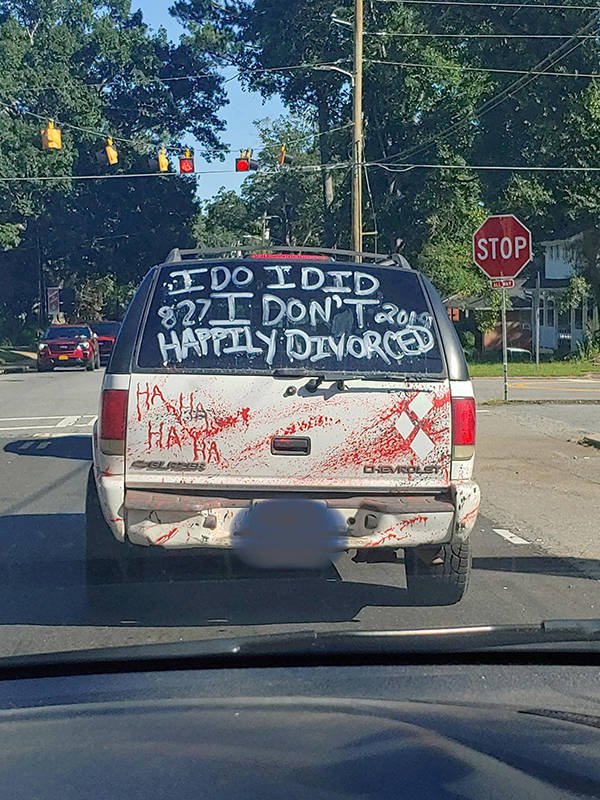 I DO I DID
827 I DON'T 2019
HAPPILY DIVORCED
HA
HA HA
HA HA
CHEVROLET
STOP
ALL WAY